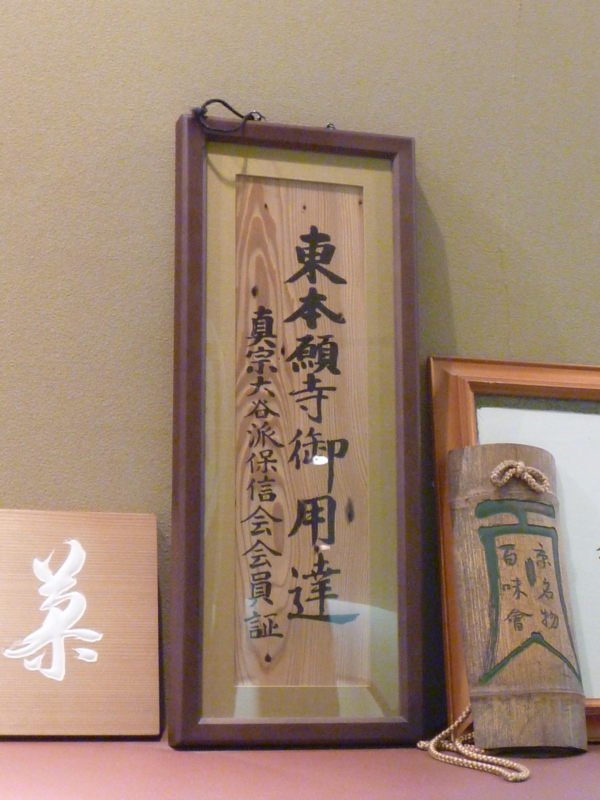 東本願寺御用達
真宗大谷派保信会会員証
京名物
百味會
菓